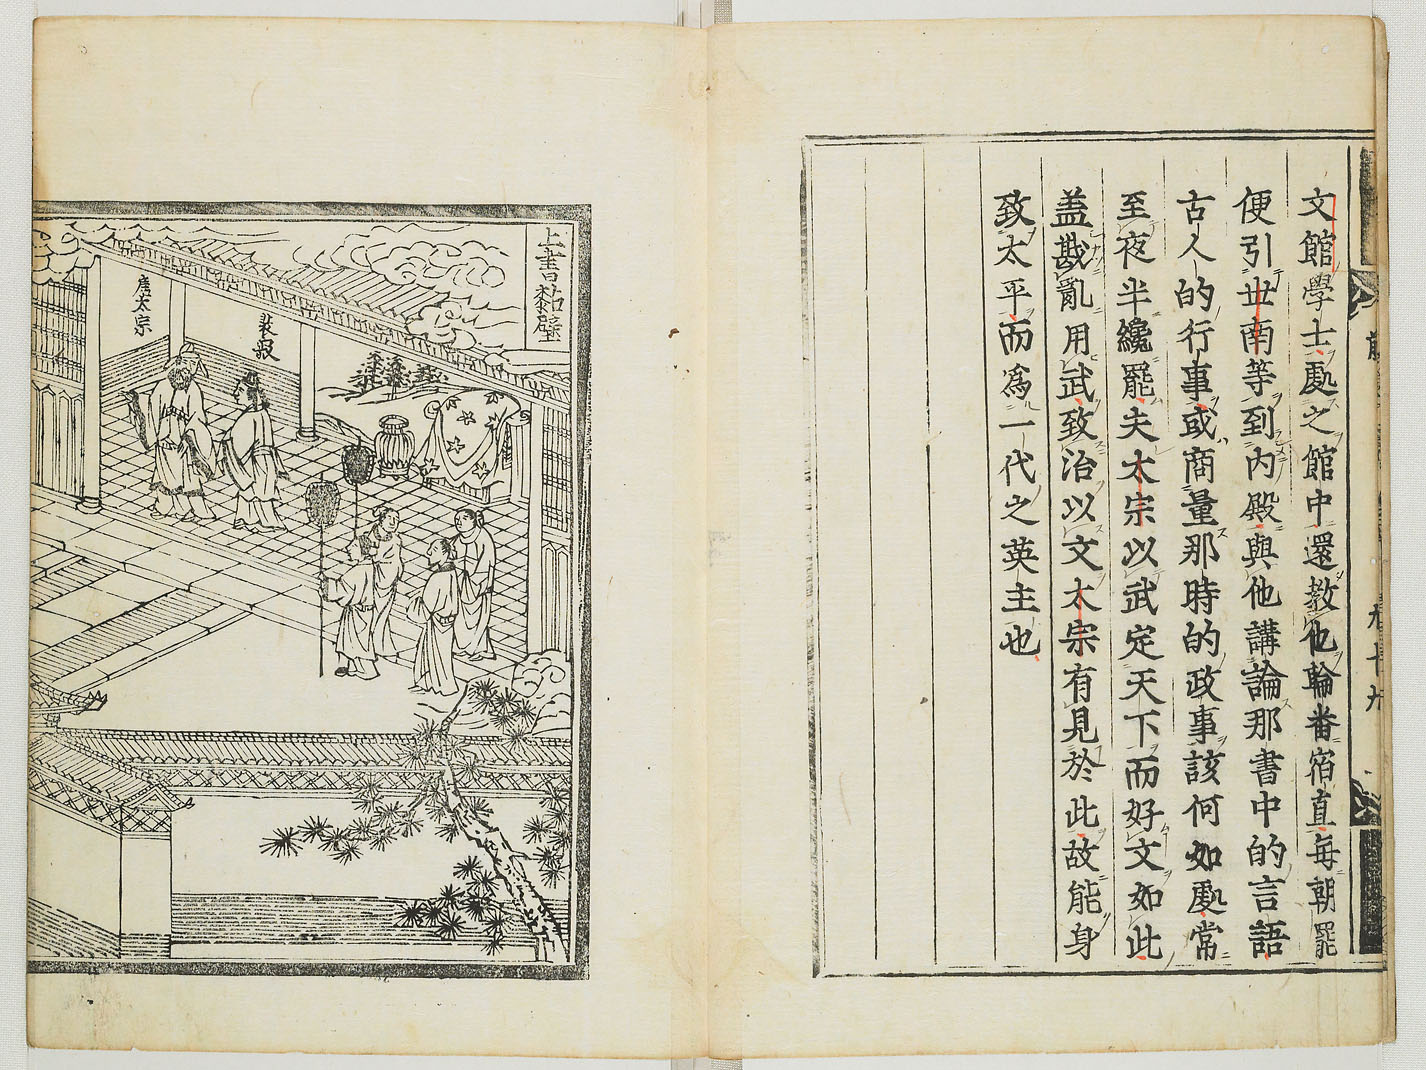 文館學士處之館中還教他輪畨宿直每朝罷
便引丗南等到內殿與他講論那書中的言語
古人的行事或商量那時的政事該何如處常
至夜半纔罷夫太宗以武定天下而好文如此
盖戡亂用武致治以文太宗有見於此故能身
致太平而爲一代之英主也
上書黏壁
裴寂
唐太宗